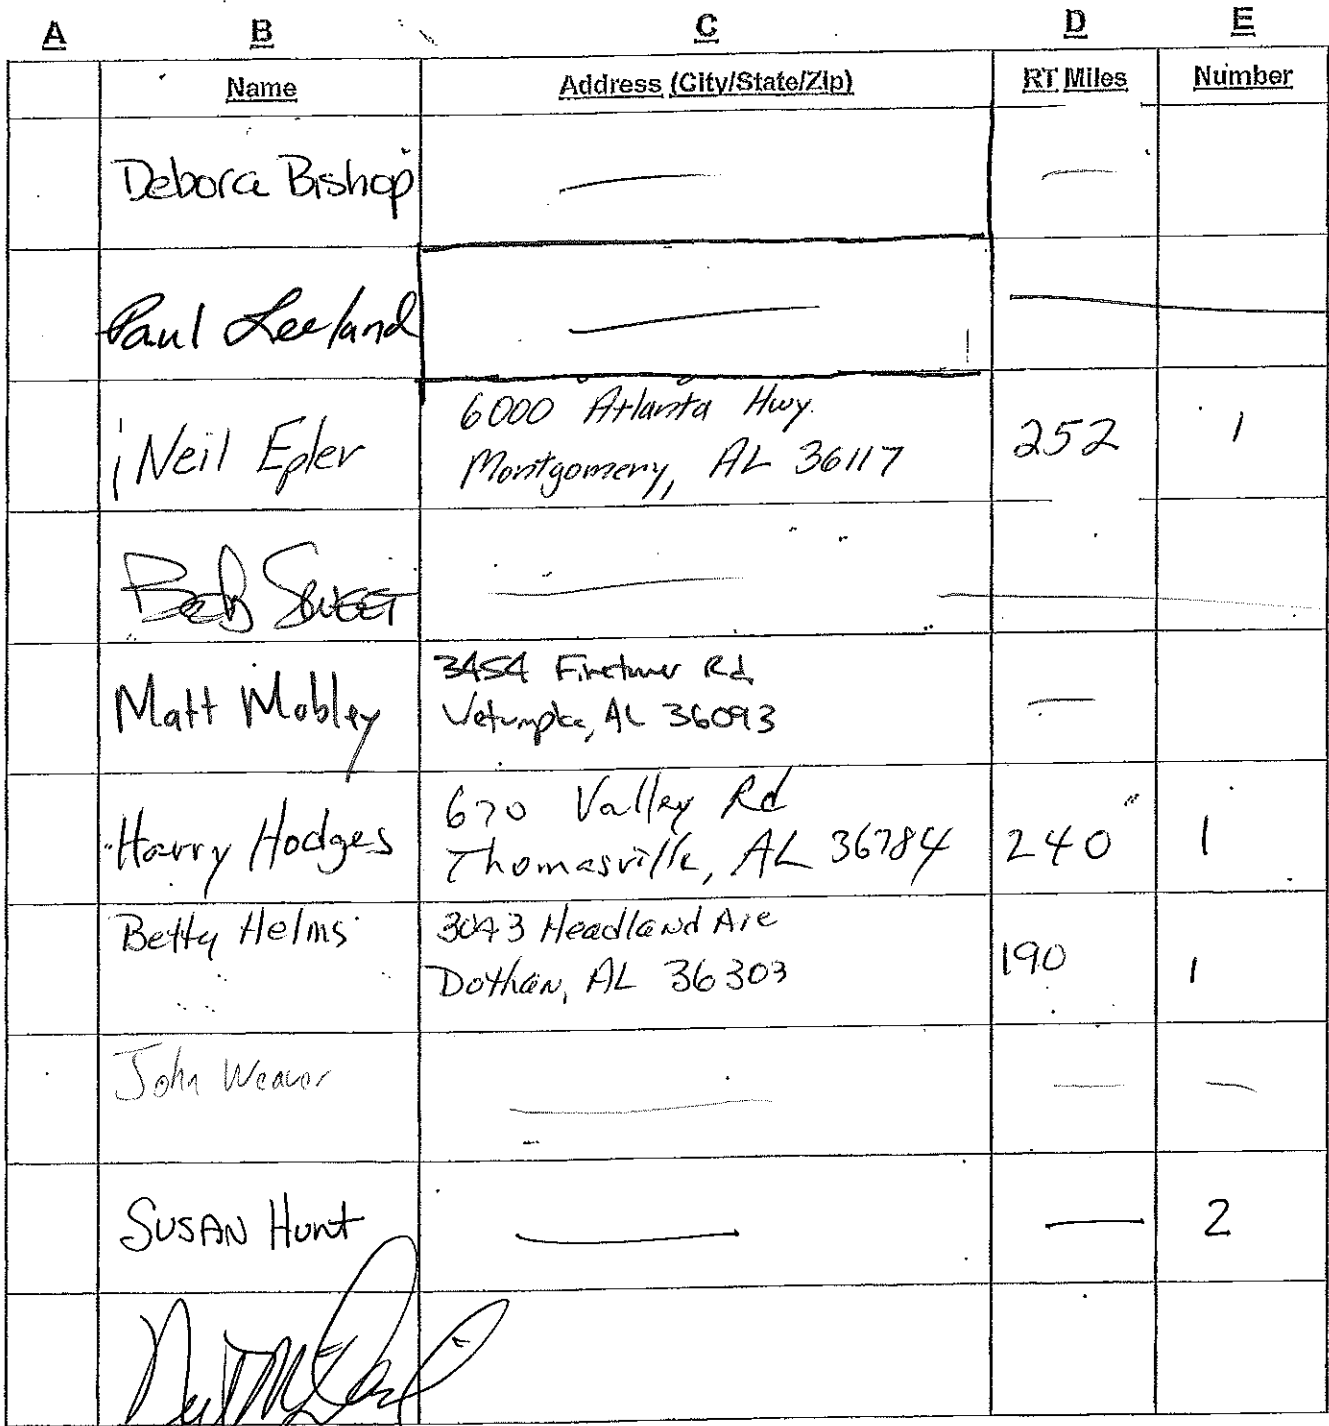 A B C D E
Name Address (City/State/Zip) RT Miles Number
Debora Bishop — —
Paul Leeland — —
Neil Epler 6000 Atlanta Hwy. 252 1
Montgomery, AL 36117
Bob Sweet — —
Matt Mobley 3454 Rd —
Wetumpka, AL 36093
Harry Hodges 670 Valley Rd 240 1
Thomasville, AL 36784
Betty Helms 3043 Headland Ave 190 1
Dothan, AL 36303
John Weaver — — —
SUSAN Hunt — — 2